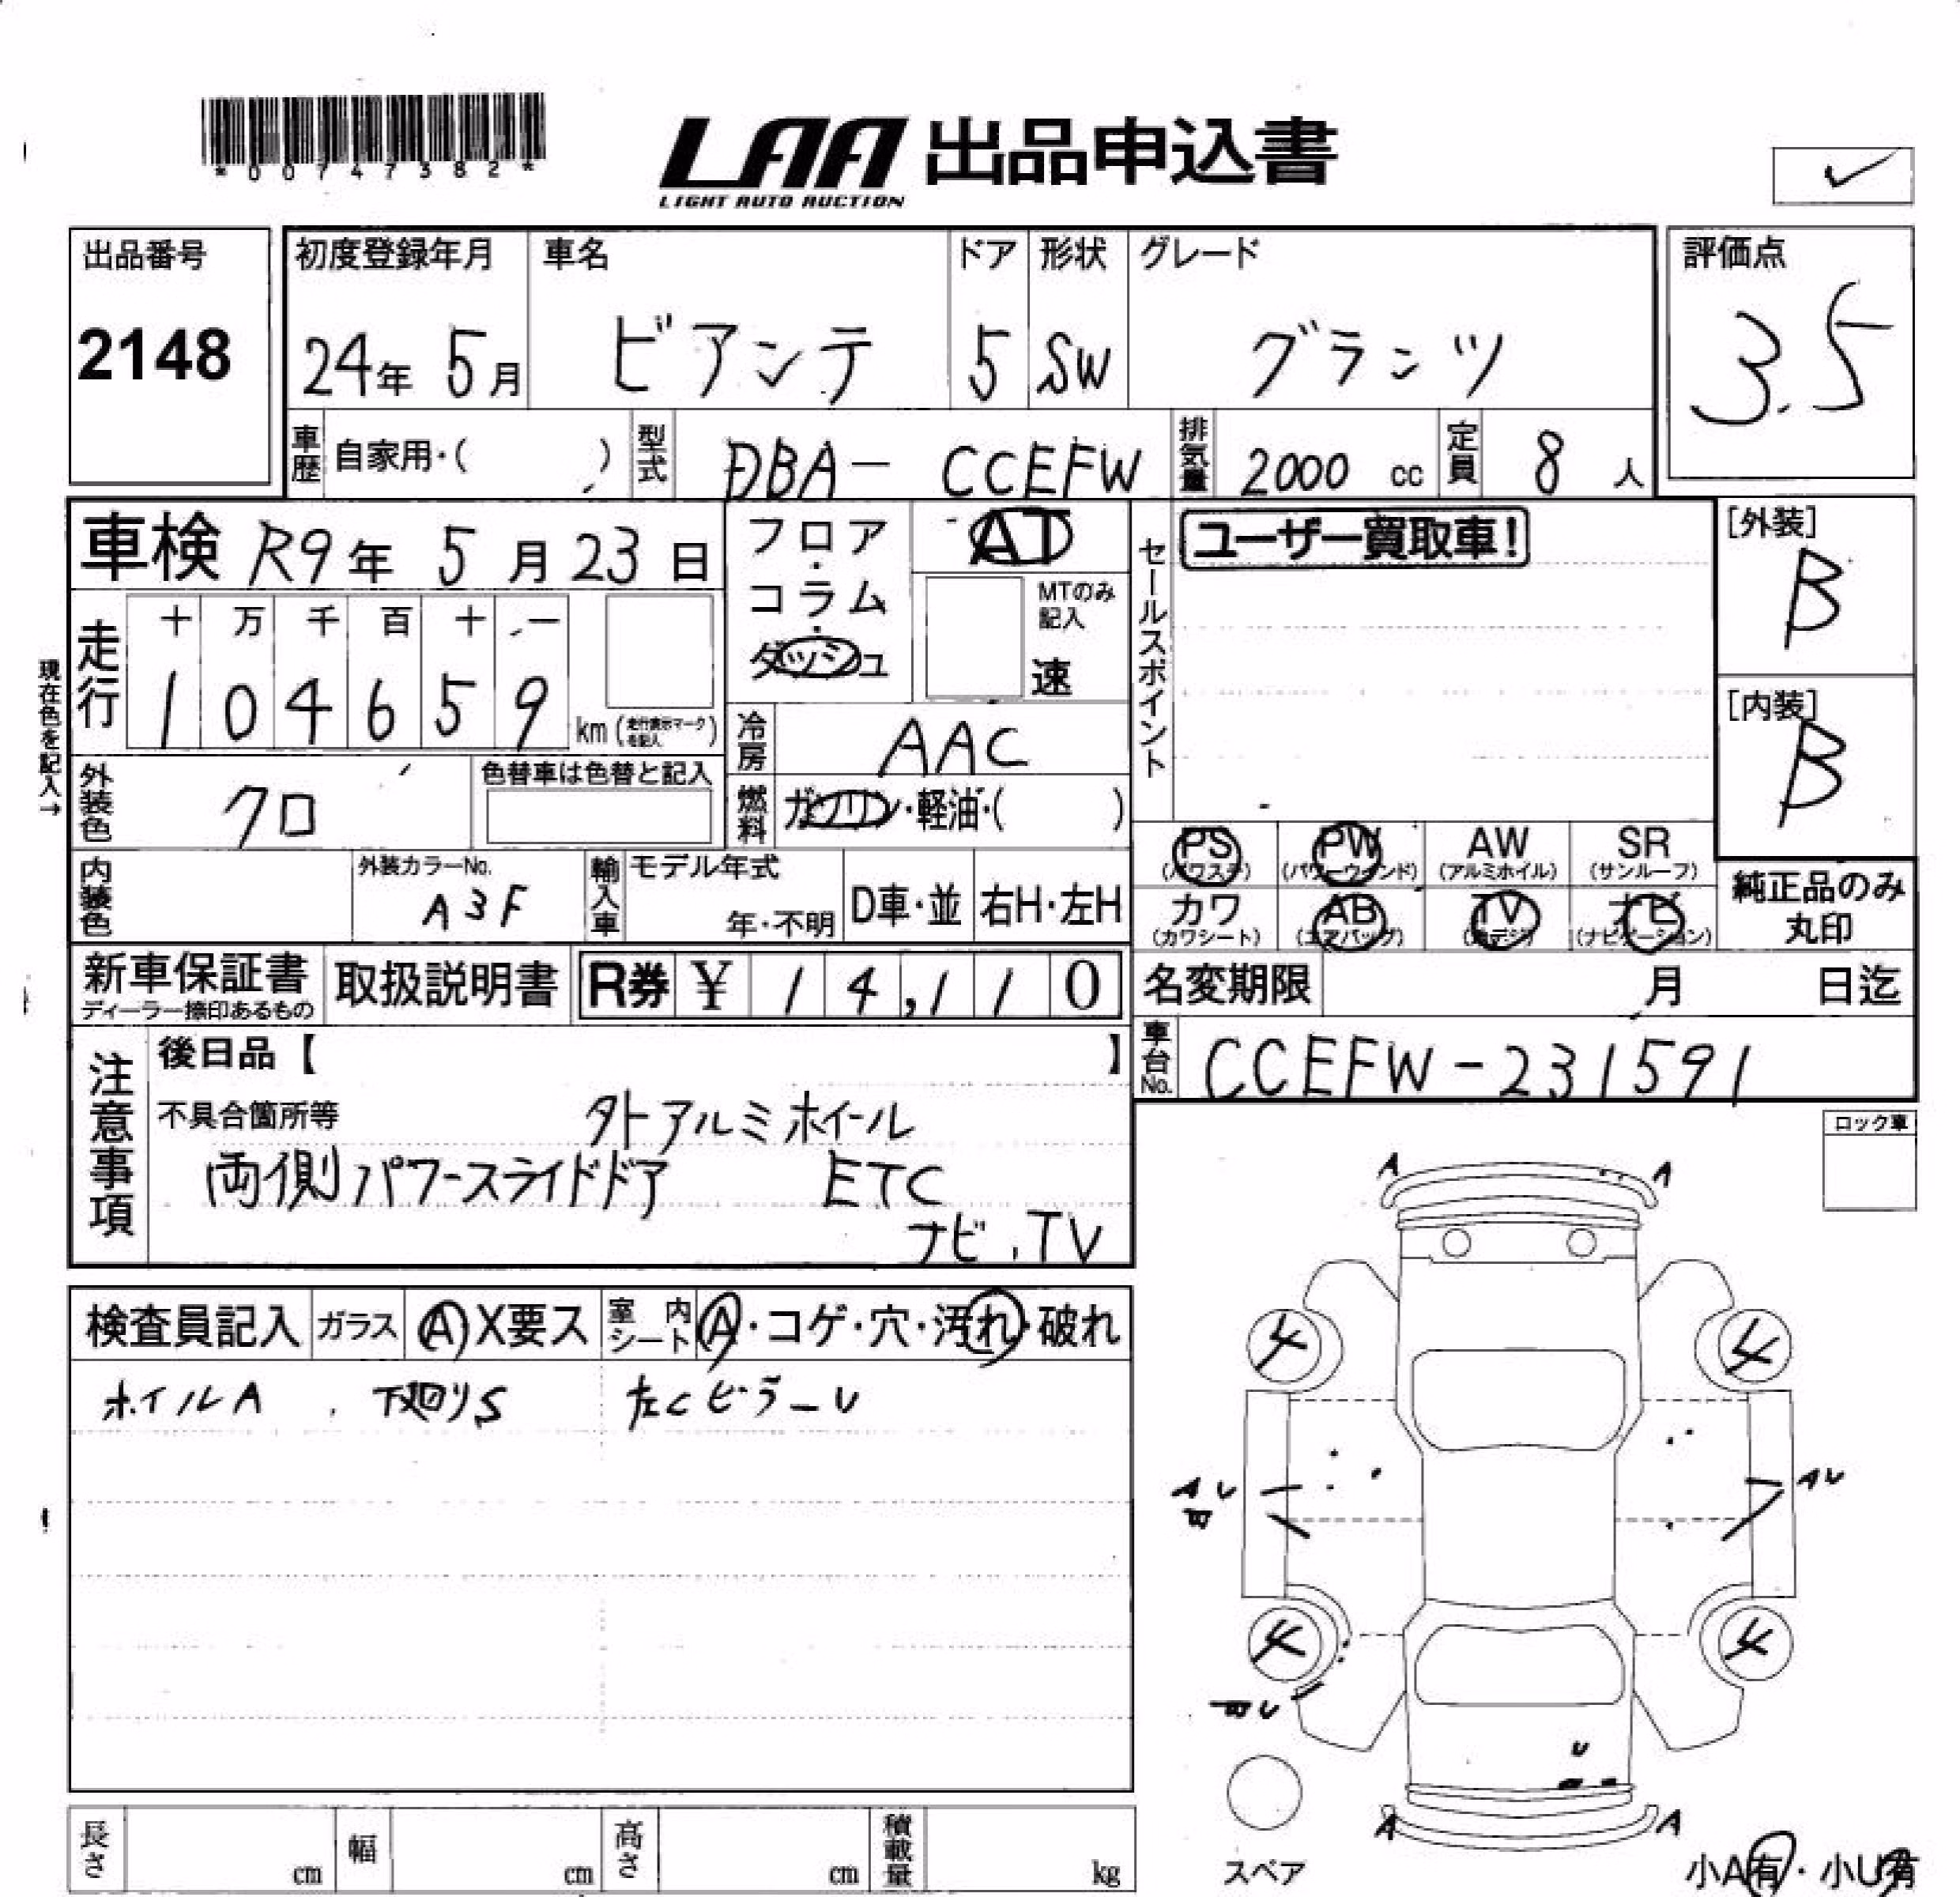 *00747382*
LAA 出品申込書
LIGHT AUTO AUCTION
✓
出品番号 初度登録年月 車名 ドア 形状 グレード 評価点
2148 24年 5月 ビアンテ 5 SW グランツ 3.5
車歴 自家用・( ) 型式 DBA- CCEFW 排気量 2000 cc 定員 8 人
車検 R9年 5月23日
フロア・コラム・ダッシュ
AT
MTのみ記入
速
セールスポイント
ユーザー買取車!
[外装]
B
[内装]
B
現在色を記入→
走行 十 万 千 百 十 一
1 0 4 6 5 9 km (走行表示マークを記入)
冷房 AAC
外装色 クロ 色替車は色替と記入
燃料 ガソリン・軽油・( )
PS (パワステ) PW (パワーウインド) AW (アルミホイル) SR (サンルーフ)
カワ (カワシート) AB (エアバッグ) TV (地デジ) ナビ (ナビゲーション)
純正品のみ丸印
内装色 外装カラーNo. A3F 輸入車 モデル年式 年・不明 D車・並 右H・左H
新車保証書 ディーラー捺印あるもの 取扱説明書 R券 ¥ 14,110 名変期限 月 日迄
車台No. CCEFW-231591
注意事項
後日品【 】
不具合箇所等 外アルミホイール
両側パワースライドドア ETC
ナビ、TV
ロック車
検査員記入 ガラス A X要ス 室内シート A・コゲ・穴・汚れ・破れ
ホイルA 下廻りS 左CピラーU
A A
4 4
A U A U
4 4
U
U
A A
スペア
小A有・小U有
長さ cm 幅 cm 高さ cm 積載量 kg